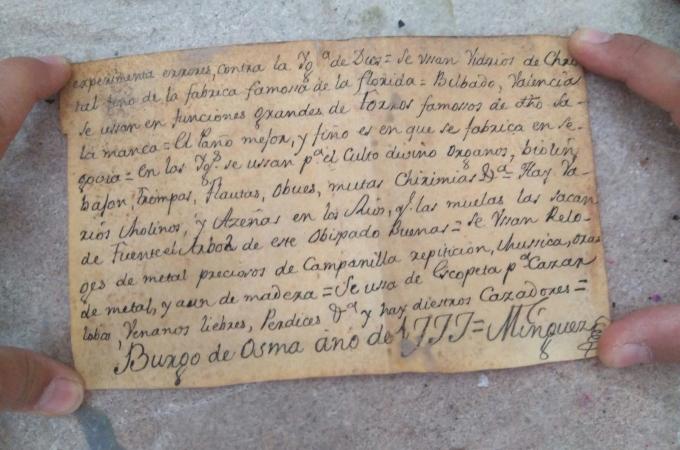 experimenta errores, contra la Yg.ª de Dios = Se Vssan Vidrios de Chris-
tal fino de la fabrica famossa de la florida = Bilbado, Valencia
se ussan en funciones grandes de toros famossos de dho Sa-
lamanca = El Paño mejor, y fino es en que se fabrica en Se-
govia = En las Yg.s se ussan p.ª el Culto divino Organos, biolin
bajon, trompas, flautas, Obues, Chirimias &.ª = Hay Va-
rios Molinos, y Azeñas en los Rios, y las muelas las sacan
de Fuente el Arbol de este Obispado Buenas = Se Vssan Relo-
ges de metal preciosos de Campanilla repiticion, Mussica, otras
de metal, y aun de madera = Se ussa de Escopeta p.ª Cazar
lobos, Venanos liebres, Perdices &.ª y hay diestros Cazadores =
Burgo de Osma año de 1777 = Minguez